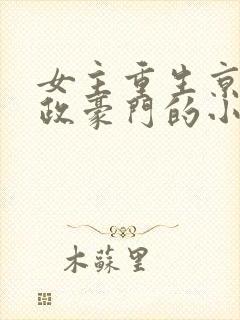 女主重生京
政豪門的小
木蘇里